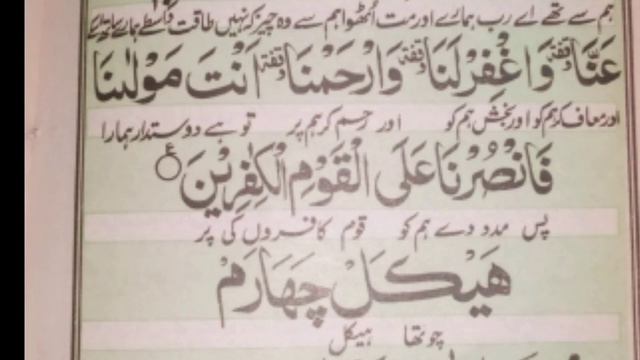 ہم سے تھے اے رب ہمارے اور مت اٹھوا ہم سے وہ چیز کہ نہیں طاقت واسطے ہمارے ساتھ اسکے
عَنَّا وقفة وَاغْفِرْ لَنَا وقفة وَارْحَمْنَا وقفة اَنْتَ مَوْلٰىنَا
اور معاف کر ہم کو اور بخش ہم کو اور رحم کر ہم پر تو ہے دوستدار ہمارا
فَانْصُرْنَا عَلَى الْقَوْمِ الْكٰفِرِيْنَ ع
پس مدد دے ہم کو قوم کافروں کی پر
هَيْكَلْ چَهَارَمْ
چوتھا ہیکل